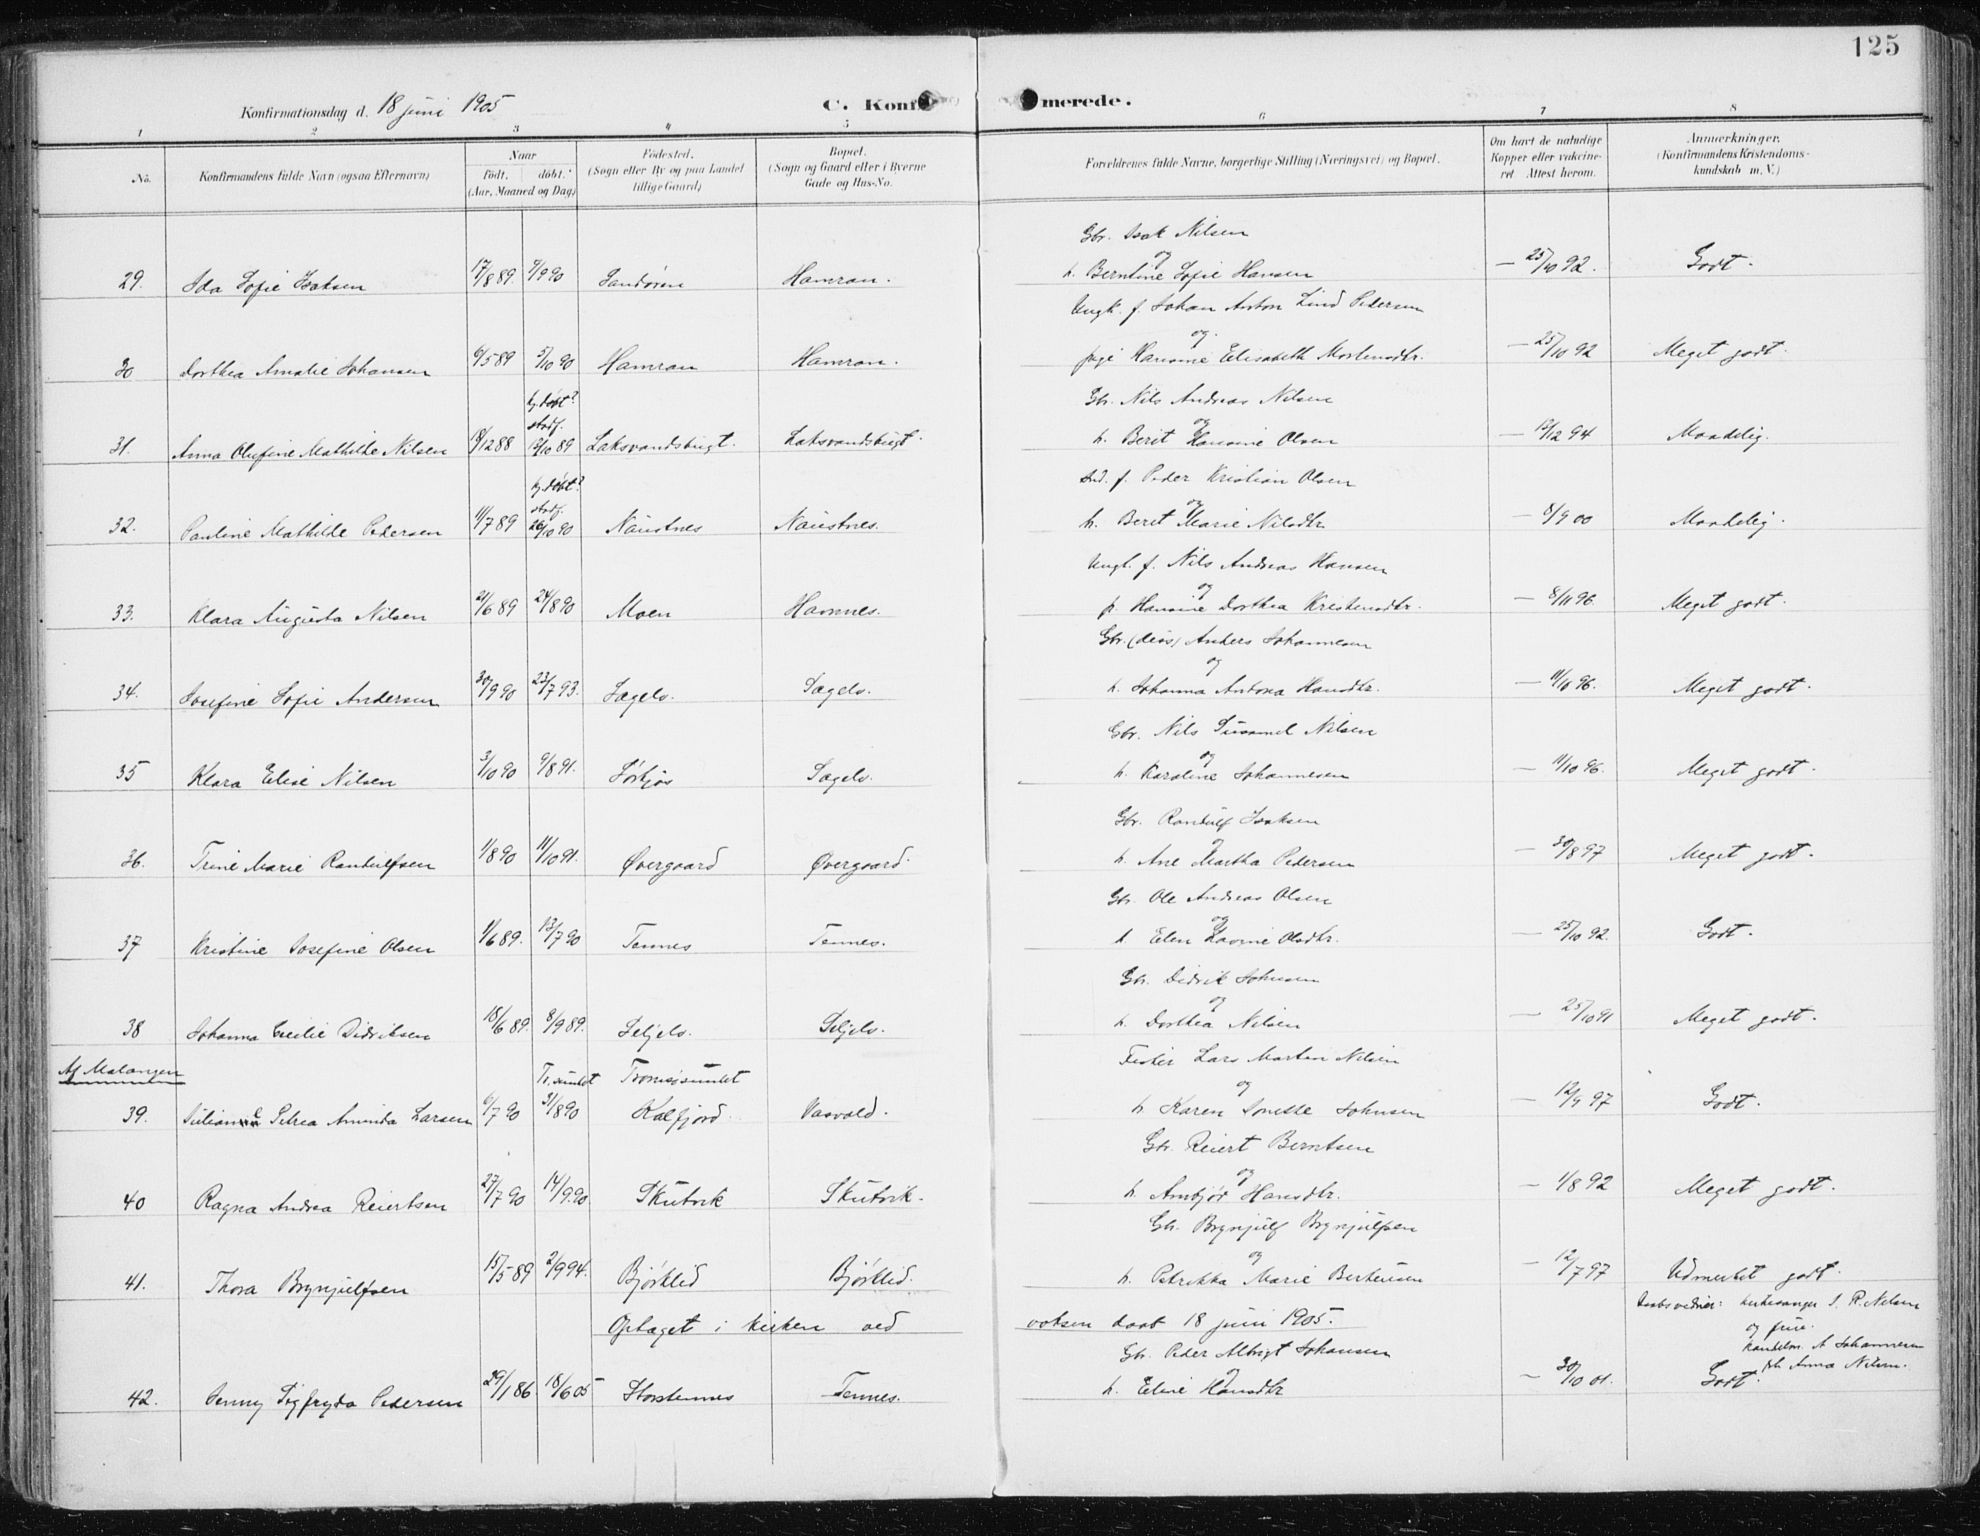 125
Konfirmationsdag d. 18 juni 1905 C. Konf merede.
1 2 3 4 5 6 7 8
No. Konfirmandens fulde Navn (ogsaa Efternavn) Naar født. døbt. (Aar, Maaned og Dag) Fødested. (Sogn eller By og paa Landet tillige Gaard) Bopæl. (Sogn og Gaard eller i Byerne Gade og Hus-No. Forældrenes fulde Navne, borgerlige Stilling (Næringsvei) og Bopæl. Om havt de naturlige Kopper eller vakcineret Attest herom. Anmærkninger. (Konfirmandens Kristendomskundskab m. V.)
Gbr. Isak Nilsen
og
29. Ida Sofie Isaksen 17/8 89. 7/9 90 Sandøren Hamran. h. Berntine Sofie Hansen — 25/10 92. Godt.
Ungk. f. Johan Anton Lind Pedersen
og
30 Dorthea Amalie Johansen 6/5 89 5/10 90 Hamran Hamran. pige Hansine Elisabeth Mortensdtr. — 25/10 92 Meget godt.
Gbr. Nils Andreas Nilsen
og
31. Anna Olufine Mathilde Nilsen 8/12 88 hj. døbt? stadf. 13/10 89 Laksvandsbugt. Laksvandsbugt. h. Berit Hansine Olsen — 12/12 94 Maadelig.
Ind. f. Peder Kristian Olsen
og
32. Pauline Mathilde Pedersen 11/7 89 hj. døbt? stadf. 26/10 90 Naustnes Naustnes. h. Berit Marie Nilsdtr. — 8/9 00 Maadelig.
Ungk. f. Nils Andreas Hansen
og
33. Klara Augusta Nilsen 21/6 89 24/8 90 Moen Havnnes. p. Hansine Dorthea Kristensdtr. — 8/11 96. Meget godt.
Gbr. (død) Anders Johannesen
og
34. Josefine Sofie Andersen 30/9 90 23/7 93. Sagelv. Sagelv. h. Johanna Antona Hansdtr. — 11/10 96. Meget godt.
Gbr. Nils Nilsen
og
35 Klara Elise Nilsen 3/10 90 9/8 91. Sørkjos Sagelv. h. Karoline Johannesen — 11/10 96. Meget godt.
Gbr. Randulf Isaksen
og
36. Trine Marie Randulfsen 1/8 90 11/10 91. Øvergaard Øvergaard. h. Ane Martha Pedersen — 30/8 97 Meget godt.
Gbr. Ole Andreas Olsen
og
37 Kristine Josefine Olsen 1/6 89. 13/7 90 Tennes Tennes. h. Elen Lavine Olsdtr. — 25/10 92. Godt.
Gbr. Didrik Johnsen
og
38 Johanna Cecilie Didriksen 18/6 89. 8/9 89. Seljelv. Seljelv. h. Dorthea Nilsen — 25/10 91 Meget godt.
Af Malangen
Tr.sundet Tromsøsundet Fisker Lars Martin Nilsen
og
39. Petrea Aminda Larsen 6/7 90 31/8 90 Kalfjord. Vasvold. h. Karen Johnsen — 12/9 97 Godt.
Gbr. Reiert Berntsen
og
40 Ragna Andrea Reiertsen 27/7 90 14/9 90. Skutvik Skutvik. h. Ambjør Hansdtr. — 1/8 92 Meget godt.
Gbr. Brynjulf Brynjulfsen
og
41. Thora Brynjulfsen 15/5 89 2/9 94. Bjørklid Bjørklid. h. Petrikka Marie Berteusen — 12/7 97 Udmerket godt.
Optaget i kirken ved voksen daab 18 juni 1905. Daabsvidner: kirkesanger J. R. Nilsen
og frue.
Gbr. Peder Albrigt Johansen Handelsm. A Johannesen
og Anna Nilsen.
42. Jenny Sigfryda Pedersen 29/1 86. 18/6 05 Storstennes Tennes. h. Eline Hansdtr — 30/10 01. Godt.